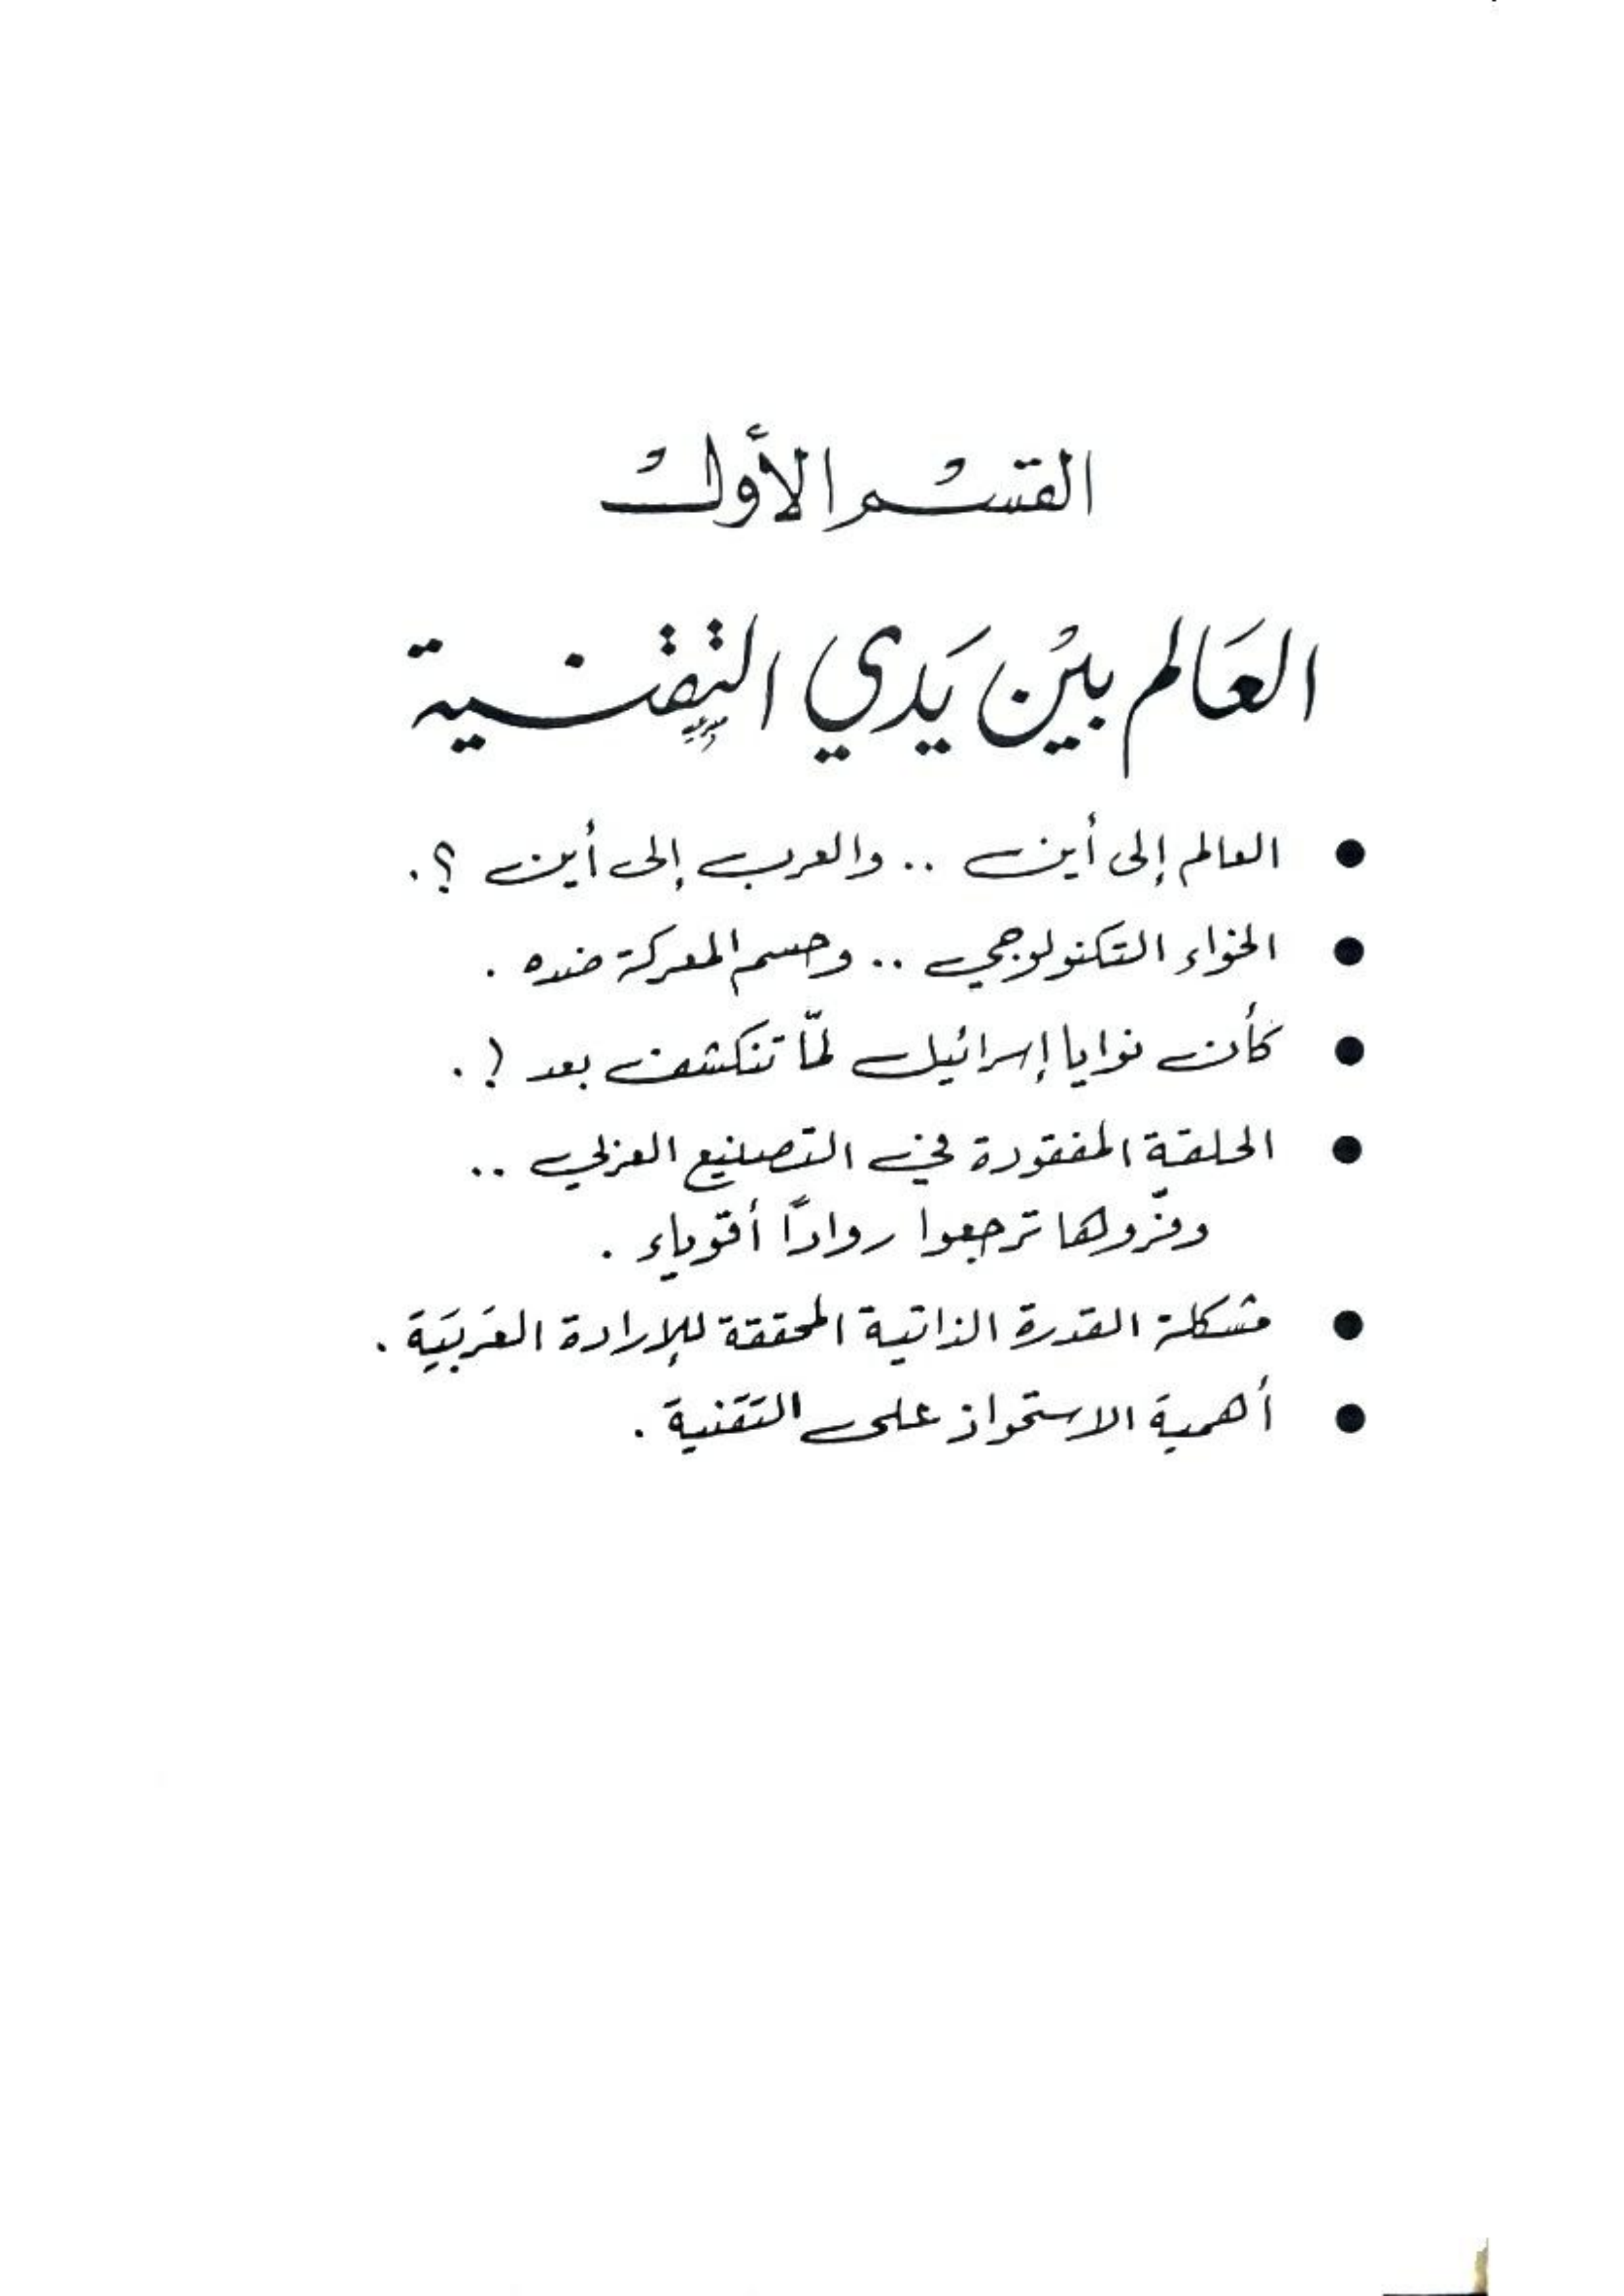 القسم الأول
العالم بين يدي التقنية
● العالم إلى أين .. والعرب إلى أين ؟.
● الخواء التكنولوجي .. وحسم المعركة ضده .
● كأن نوايا إسرائيل لمّا تنكشف بعد !.
● الحلقة المفقودة في التصنيع العربي ..
وفّروها ترجعوا روادًا أقوياء .
● مشكلة القدرة الذاتية المحققة للإرادة العَربيَة .
● أهمية الاستحواذ على التَقَنية .